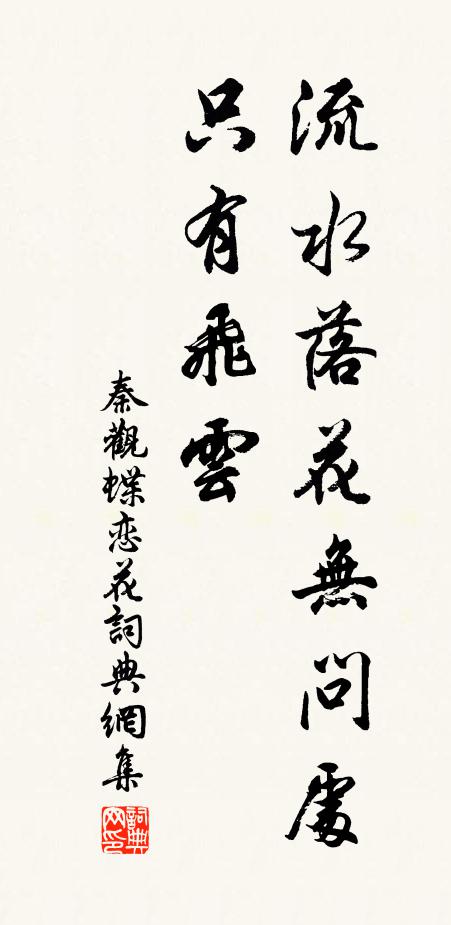 流水落花無問處
只有飛雲
秦觀蝶恋花詞典網集
詞典網印